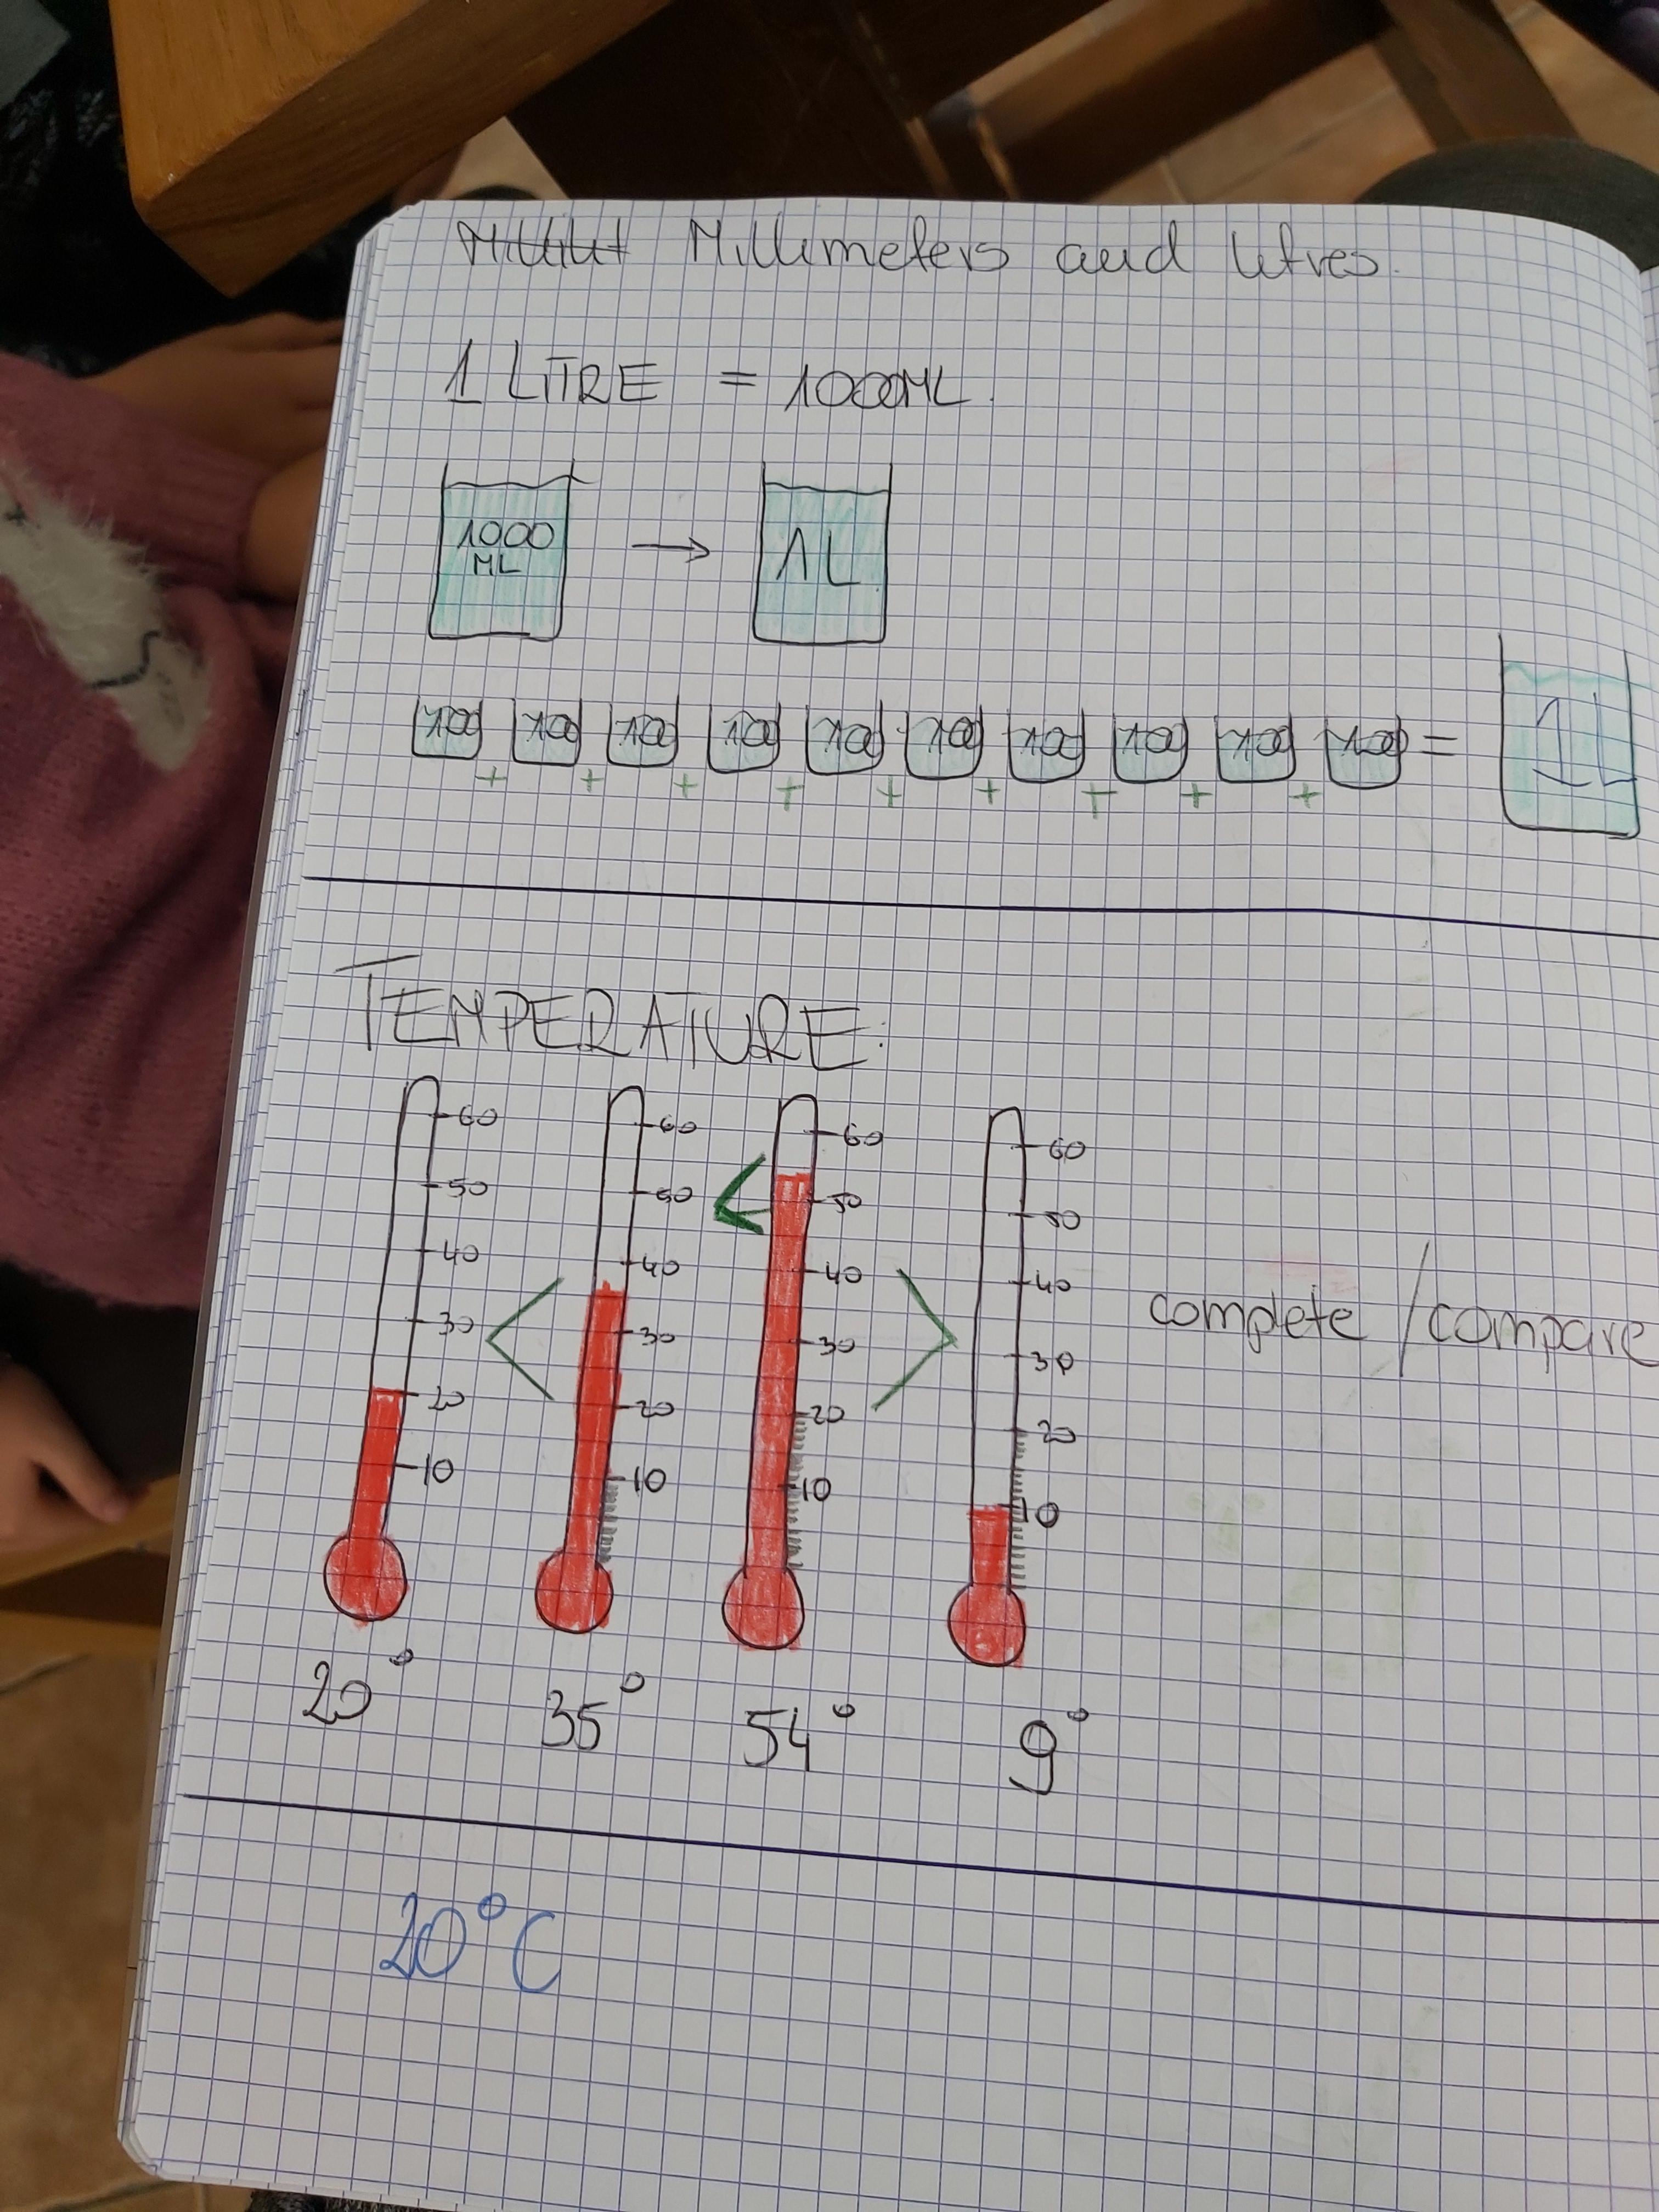 Millilit Millimeters and litres.
1 LITRE = 1000ML.
1000 ML → 1L
100 + 100 + 100 + 100 + 100 + 100 + 100 + 100 + 100 + 100 = 1L
TEMPERATURE:
60 60 60 60
50 50 50 50
40 < 40 < 40 > 40
30 30 30 30 complete / compare
20 20 20 20
10 10 10 10
20° 35° 54° 9°
20°C